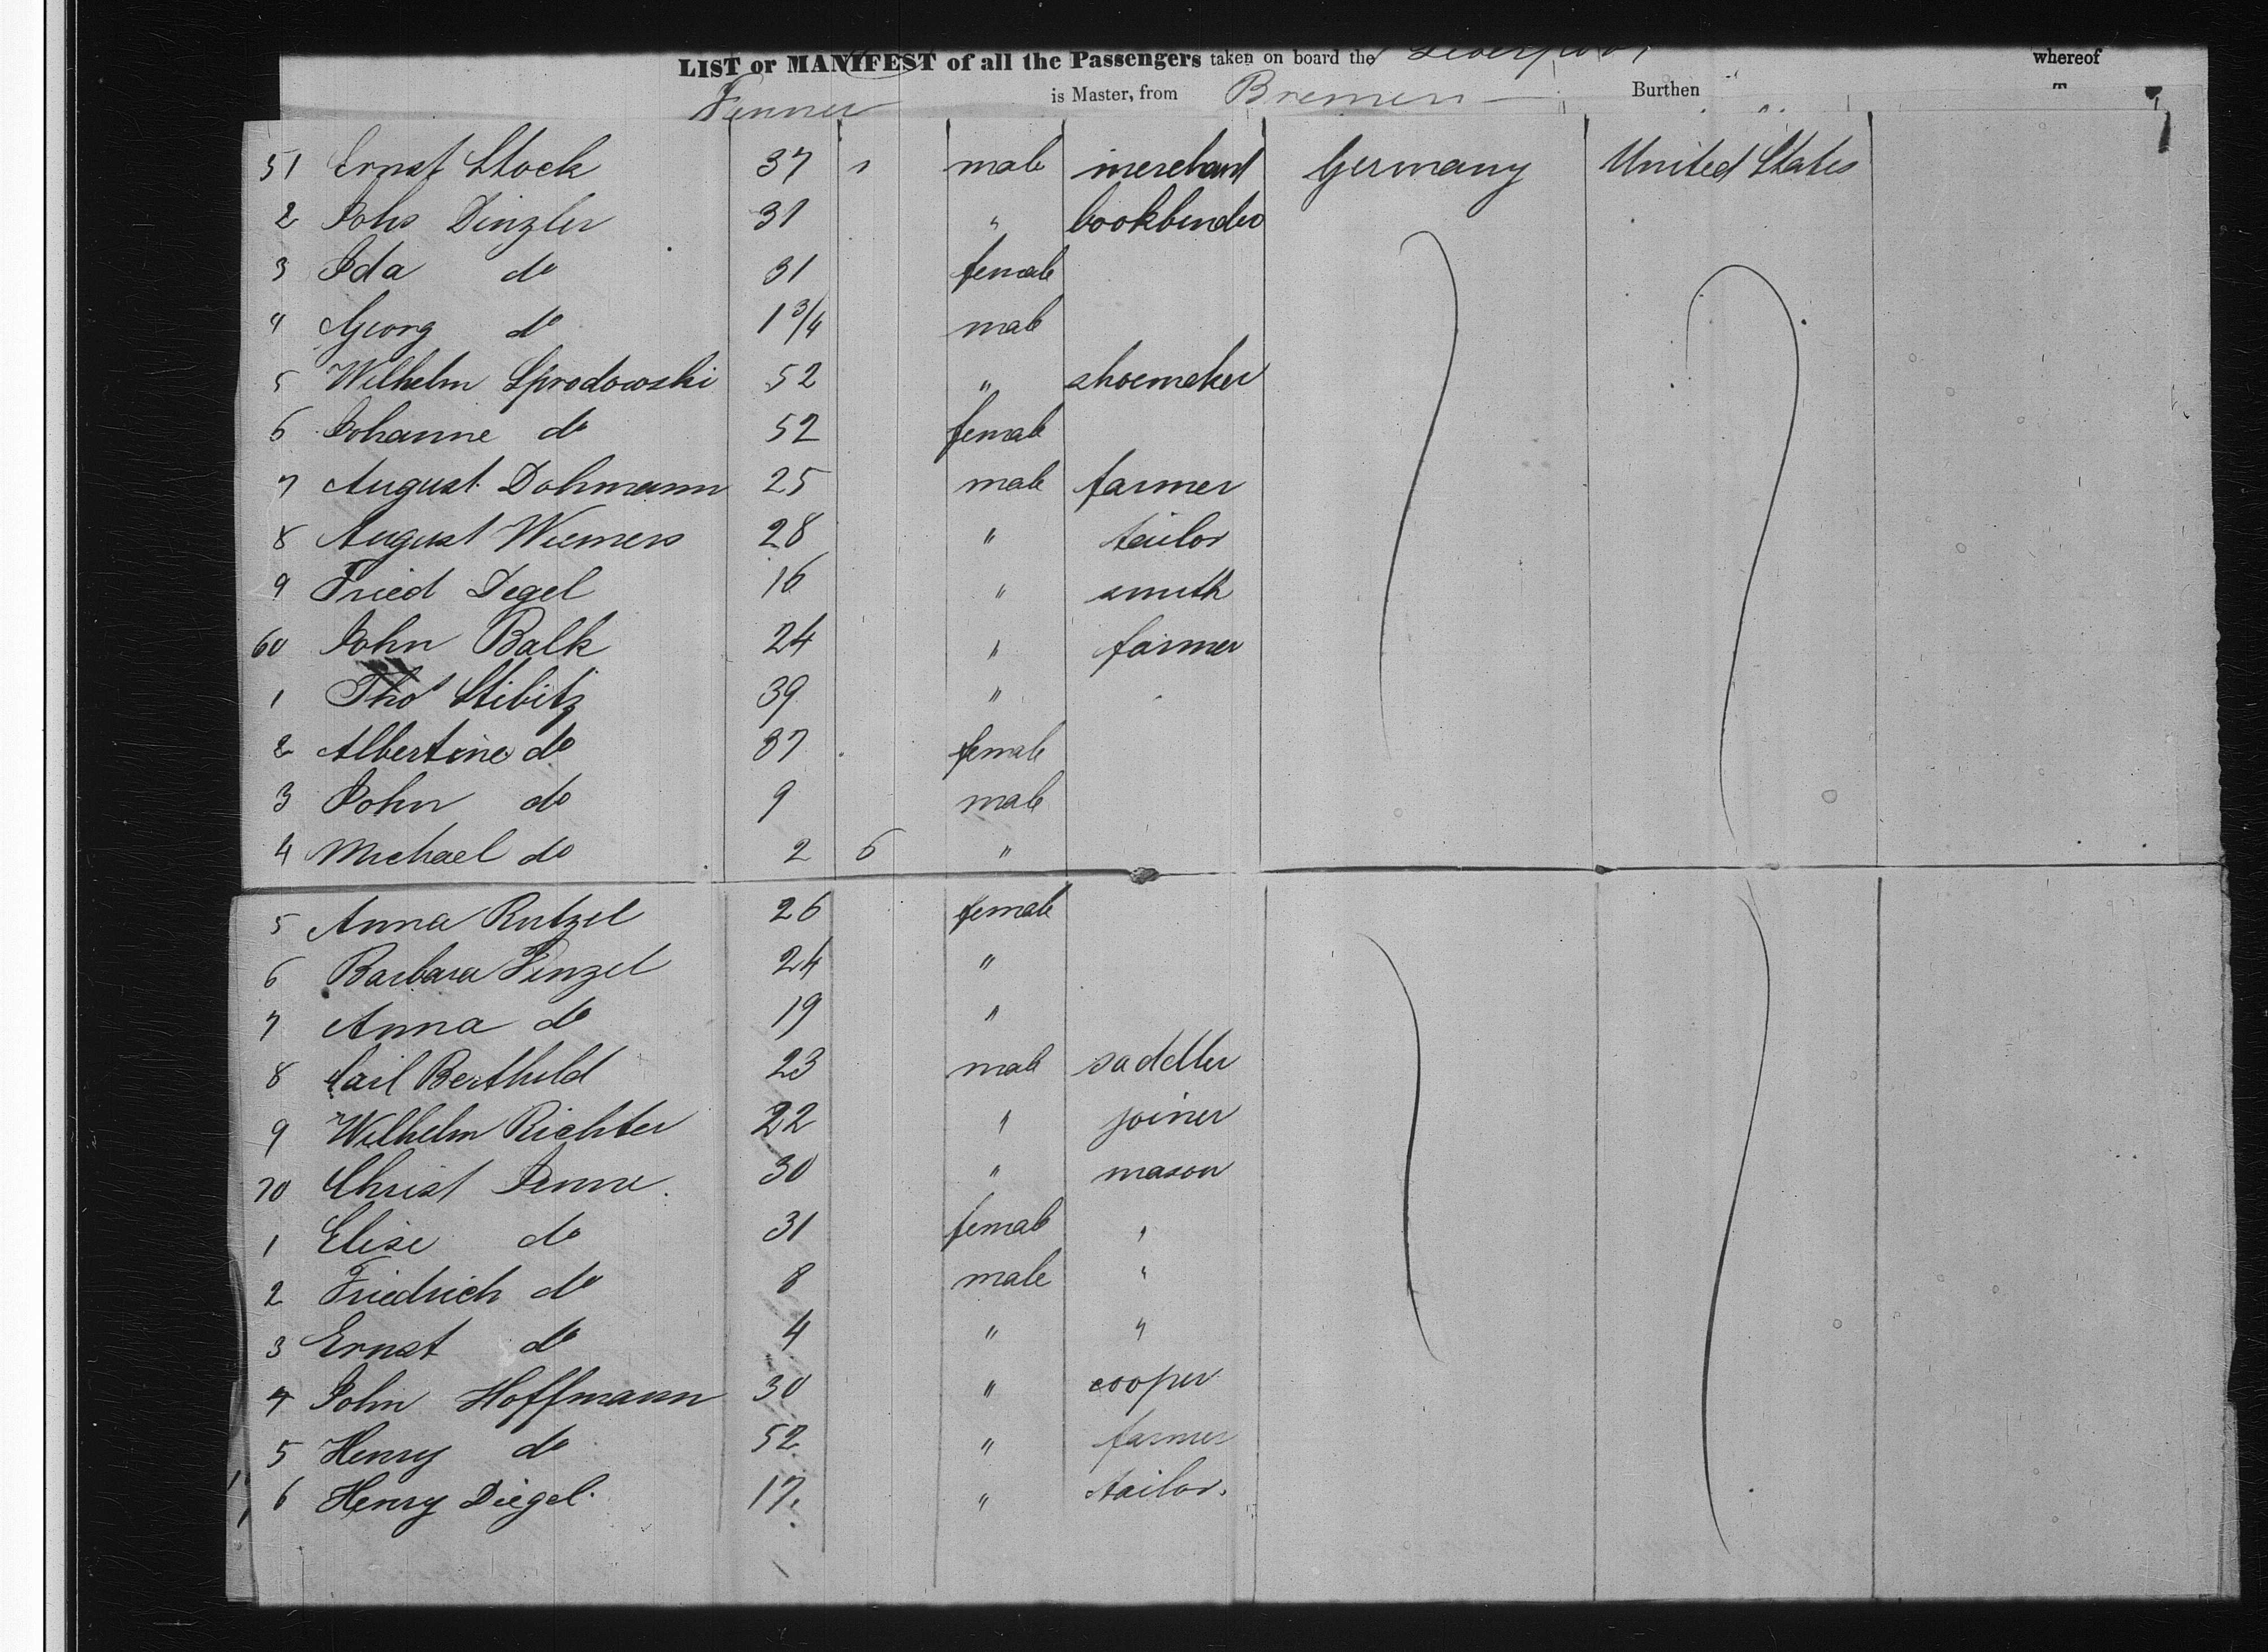 LIST or MANIFEST of all the Passengers taken on board the Liverpool whereof
is Master, from Bremen Burthen
51 Ernst Stock 37 male merchant Germany United States
2 Johs Dinzler 31 " bookbinder
3 Ida do 31 female
4 Georg do 1 3/4 male
5 Wilhelm Sprodowski 52 " shoemaker
6 Johanne do 52 female
7 August Dohmann 25 male farmer
8 August Wiemers 28 " tailor
9 Fried Degel 16 " smith
60 John Balk 24 " farmer
1 Thos Stibitz 39 "
2 Albertine do 37 female
3 John do 9 male
4 Michael do 2 6 "
5 Anna Rutzel 26 female
6 Barbara 24 "
7 Anna do 19 "
8 Carl Berthold 23 male saddler
9 Wilhelm Richter 22 " joiner
70 Christ Penne 30 " mason
1 Elise do 31 female "
2 Friedrich do 8 male "
3 Ernst do 4 " "
4 John Hoffmann 30 " cooper
5 Henry do 52 " farmer
6 Henry Diegel 17 " tailor